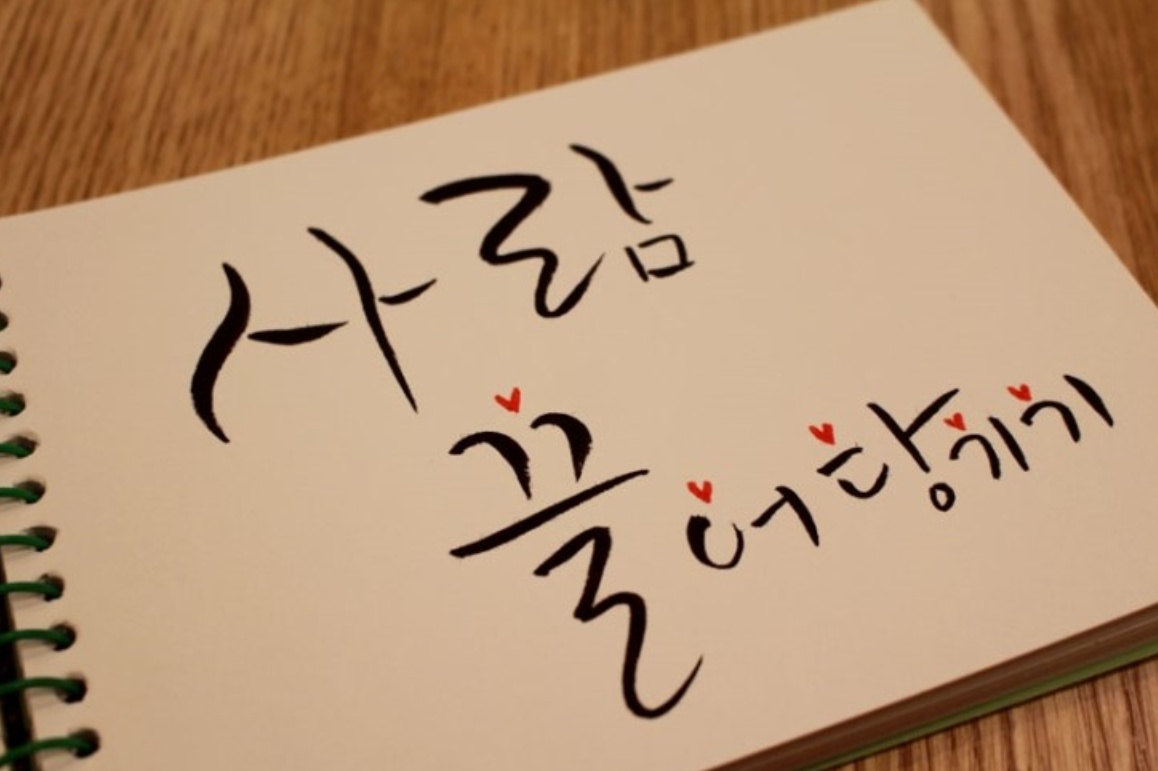 사람
끌어당기기